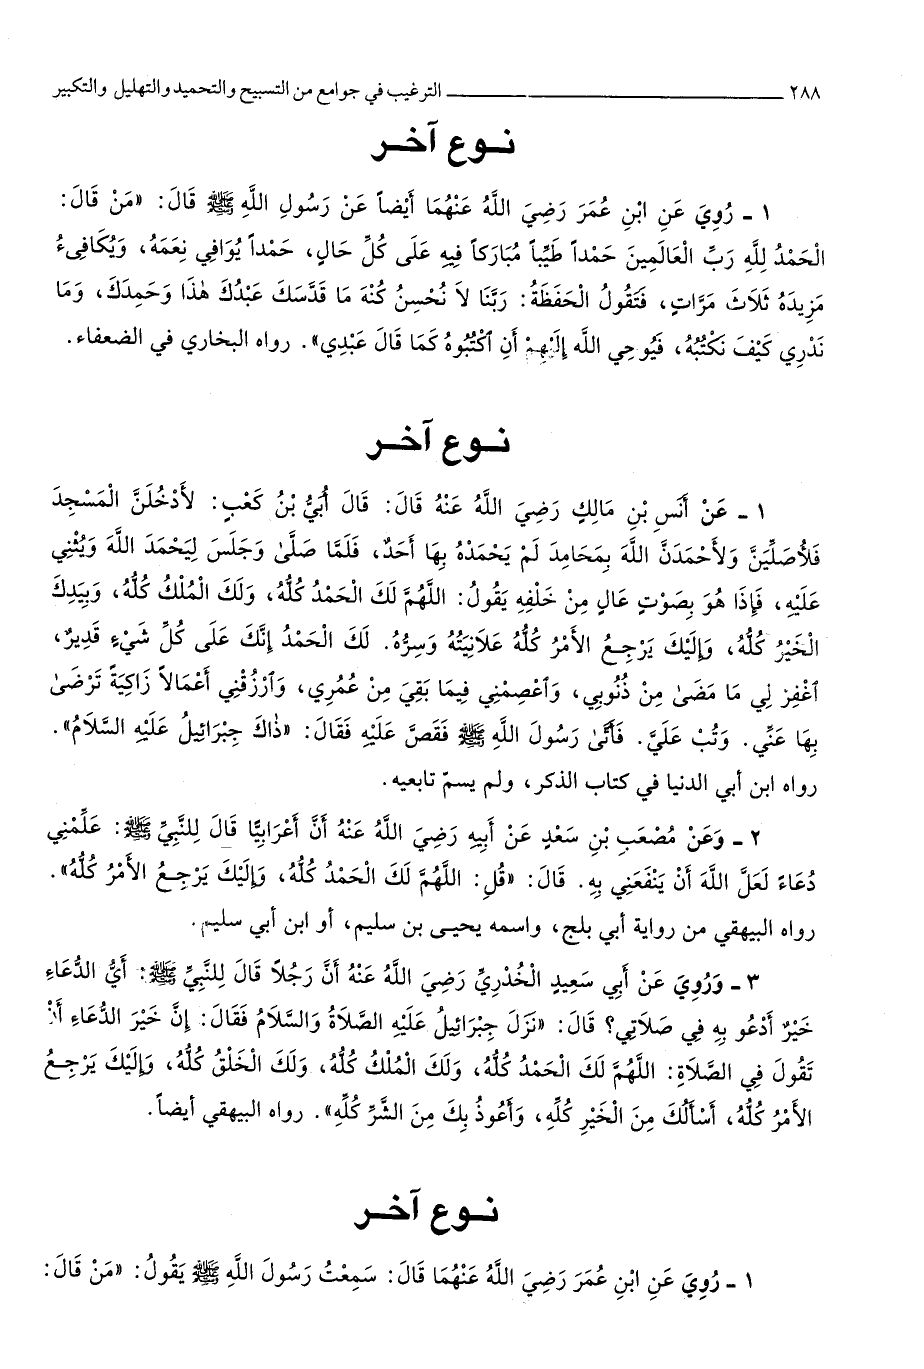 ٢٨٨ الترغيب في جوامع من التسبيح والتحميد والتهليل والتكبير
نوع آخر
١ - رُوِيَ عَنِ ابْنِ عُمَرَ رَضِيَ اللَّهُ عَنْهُمَا أَيْضاً عَنْ رَسُولِ اللَّهِ ﷺ قَالَ: «مَنْ قَالَ:
الْحَمْدُ لِلَّهِ رَبِّ الْعَالَمِينَ حَمْداً طَيِّباً مُبَارَكاً فِيهِ عَلَى كُلِّ حَالٍ، حَمْداً يُوَافِي نِعَمَهُ، وَيُكَافِىءُ
مَزِيدَهُ ثَلَاثَ مَرَّاتٍ، فَتَقُولُ الْحَفَظَةُ: رَبَّنَا لَا نُحْسِنُ كُنْهَ مَا قَدَّسَكَ عَبْدُكَ هٰذَا وَحَمِدَكَ، وَمَا
نَدْرِي كَيْفَ نَكْتُبُهُ، فَيُوحِي اللَّه إِلَيْهِمْ أَنِ ٱكْتُبُوهُ كَمَا قَالَ عَبْدِي». رواه البخاري في الضعفاء.
نوع آخر
١ - عَنْ أَنَسِ بْنِ مَالِكٍ رَضِيَ اللَّهُ عَنْهُ قَالَ: قَالَ أُبَيُّ بْنُ كَعْبٍ: لأَدْخُلَنَّ الْمَسْجِدَ
فَلأُصَلِّيَنَّ وَلأَحْمَدَنَّ اللَّهَ بِمَحَامِدَ لَمْ يَحْمَدْهُ بِهَا أَحَدٌ، فَلَمَّا صَلَّىٰ وَجَلَسَ لِيَحْمَدَ اللَّهَ وَيُثْنِي
عَلَيْهِ، فَإِذَا هُوَ بِصَوْتٍ عَالٍ مِنْ خَلْفِهِ يَقُولُ: اللَّهُمَّ لَكَ الْحَمْدُ كُلُّهُ، وَلَكَ الْمُلْكُ كُلُّهُ، وَبِيَدِكَ
الْخَيْرُ كُلُّهُ، وَإِلَيْكَ يَرْجِعُ الأَمْرُ كُلُّهُ عَلَانِيَتُهُ وَسِرُّهُ. لَكَ الْحَمْدُ إِنَّكَ عَلَى كُلِّ شَيْءٍ قَدِيرٌ،
ٱغْفِرْ لِي مَا مَضَىٰ مِنْ ذُنُوبِي، وَٱعْصِمْنِي فِيمَا بَقِيَ مِنْ عُمُرِي، وَٱرْزُقْنِي أَعْمَالاً زَاكِيَةً تَرْضَىٰ
بِهَا عَنِّي. وَتُبْ عَلَيَّ. فَأَتَىٰ رَسُولَ اللَّهِ ﷺ فَقَصَّ عَلَيْهِ فَقَالَ: «ذَاكَ جِبْرَائِيلُ عَلَيْهِ السَّلَامُ».
رواه ابن أبي الدنيا في كتاب الذكر، ولم يسمّ تابعيه.
٢ - وَعَنْ مُصْعَبِ بْنِ سَعْدٍ عَنْ أَبِيهِ رَضِيَ اللَّهُ عَنْهُ أَنَّ أَعْرَابِيًّا قَالَ لِلنَّبِيِّ ﷺ: عَلِّمْنِي
دُعَاءً لَعَلَّ اللَّهَ أَنْ يَنْفَعَنِي بِهِ. قَالَ: «قُلِ: اللَّهُمَّ لَكَ الْحَمْدُ كُلُّهُ، وَإِلَيْكَ يَرْجِعُ الأَمْرُ كُلُّهُ».
رواه البيهقي من رواية أبي بلج، واسمه يحيى بن سليم، أو ابن أبي سليم.
٣ - وَرُوِيَ عَنْ أَبِي سَعِيدٍ الْخُدْرِيِّ رَضِيَ اللَّهُ عَنْهُ أَنَّ رَجُلاً قَالَ لِلنَّبِيِّ ﷺ: أَيُّ الدُّعَاءِ
خَيْرٌ أَدْعُو بِهِ فِي صَلَاتِي؟ قَالَ: «نَزَلَ جِبْرَائِيلُ عَلَيْهِ الصَّلَاةُ وَالسَّلَامُ فَقَالَ: إِنَّ خَيْرَ الدُّعَاءِ أَنْ
تَقُولَ فِي الصَّلَاةِ: اللَّهُمَّ لَكَ الْحَمْدُ كُلُّهُ، وَلَكَ الْمُلْكُ كُلُّهُ، وَلَكَ الْخَلْقُ كُلُّهُ، وَإِلَيْكَ يَرْجِعُ
الأَمْرُ كُلُّهُ، أَسْأَلُكَ مِنَ الْخَيْرِ كُلِّهِ، وَأَعُوذُ بِكَ مِنَ الشَّرِّ كُلِّهِ». رواه البيهقي أيضاً.
نوع آخر
١ - رُوِيَ عَنِ ابْنِ عُمَرَ رَضِيَ اللَّهُ عَنْهُمَا قَالَ: سَمِعْتُ رَسُولَ اللَّهِ ﷺ يَقُولُ: «مَنْ قَالَ: